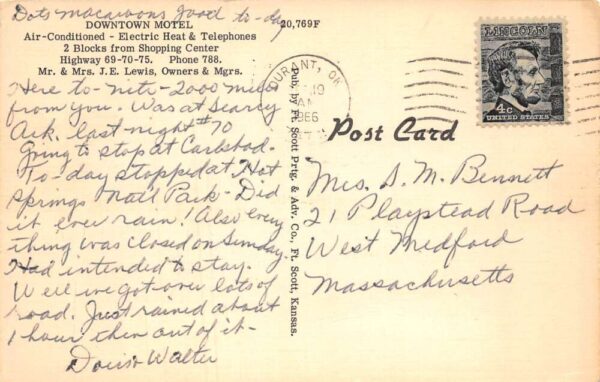 Dots macaroons good to-day
DOWNTOWN MOTEL 20,769F
Air-Conditioned - Electric Heat & Telephones
2 Blocks from Shopping Center
Highway 69-70-75. Phone 788.
Mr. & Mrs. J.E. Lewis, Owners & Mgrs.
Here to-nite - 2000 miles
from you. Was at Searcy
Ark. last night #70
Going to stop at Carlsbad.
To-day stopped at Hot
Springs Natl Park - Did
it ever rain! Also every
thing was closed on Sunday
Had intended to stay.
Well we got over lots of
road. Just rained about
1 hour then out of it -
Walter
Pub. by Ft. Scott Prtg. & Adv. Co., Ft. Scott, Kansas.
DURANT, OK
10
AM
1966
LINCOLN
4c
UNITED STATES
Post Card
Mrs. S. M. Bennett
21 Playstead Road
West Medford
Massachusetts